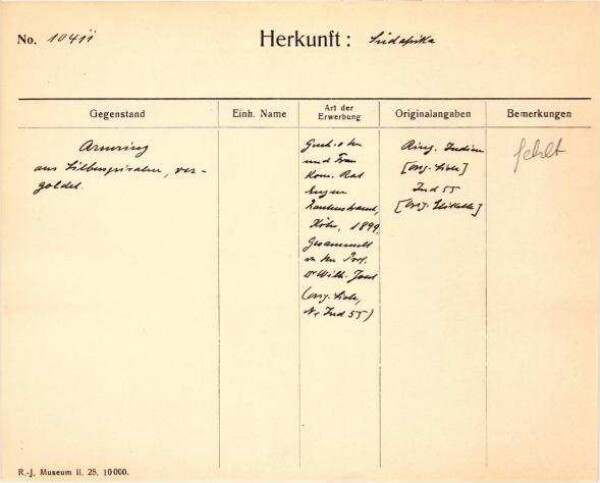 No. 10411
Herkunft: Südafrika
Gegenstand
Einh. Name
Art der Erwerbung
Originalangaben
Bemerkungen
Armring
aus Silberspiralen, ver-
goldet.
Gesch. v. Hn
und Frau
Kom. Rat
Eugen
Rautenstrauch,
Köln, 1899.
Gesammelt
v. Hn Prof.
Dr Wilh. Joest
(orig. Liste,
Nr Ind 55)
Ring. Indien
[orig. Liste]
Ind 55
[orig. Etikette]
fehlt
R.-J. Museum II. 25. 10000.